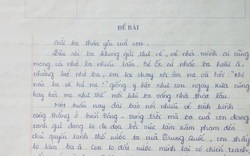 ĐỀ BÀI
Gửi ba thân yêu của con!
Lâu rồi ba không gửi thư về, cả nhà mình ai cũng
mong và nhớ ba nhiều lắm. Bé Út cứ nhắc ba hoài à.
những lúc nhớ ba, em lại chạy tới ôm mẹ và hỏi "khi
nào ba về hả mẹ" giống y hệt như con ngày xưa cũng
hay hỏi mẹ như thế mỗi khi ba vắng nhà thật lâu.
Hôm nay đài báo nói nhiều về tình hình
căng thẳng ở biển Đông - vùng trời mà ba của con đang
canh giữ đang bị đe dọa bởi các xâm phạm đến
chủ quyền lãnh thổ nước ta của Trung Quốc, con thấy
lo lắm ba ạ. Con lo đất nước mình lại có chiến tranh,